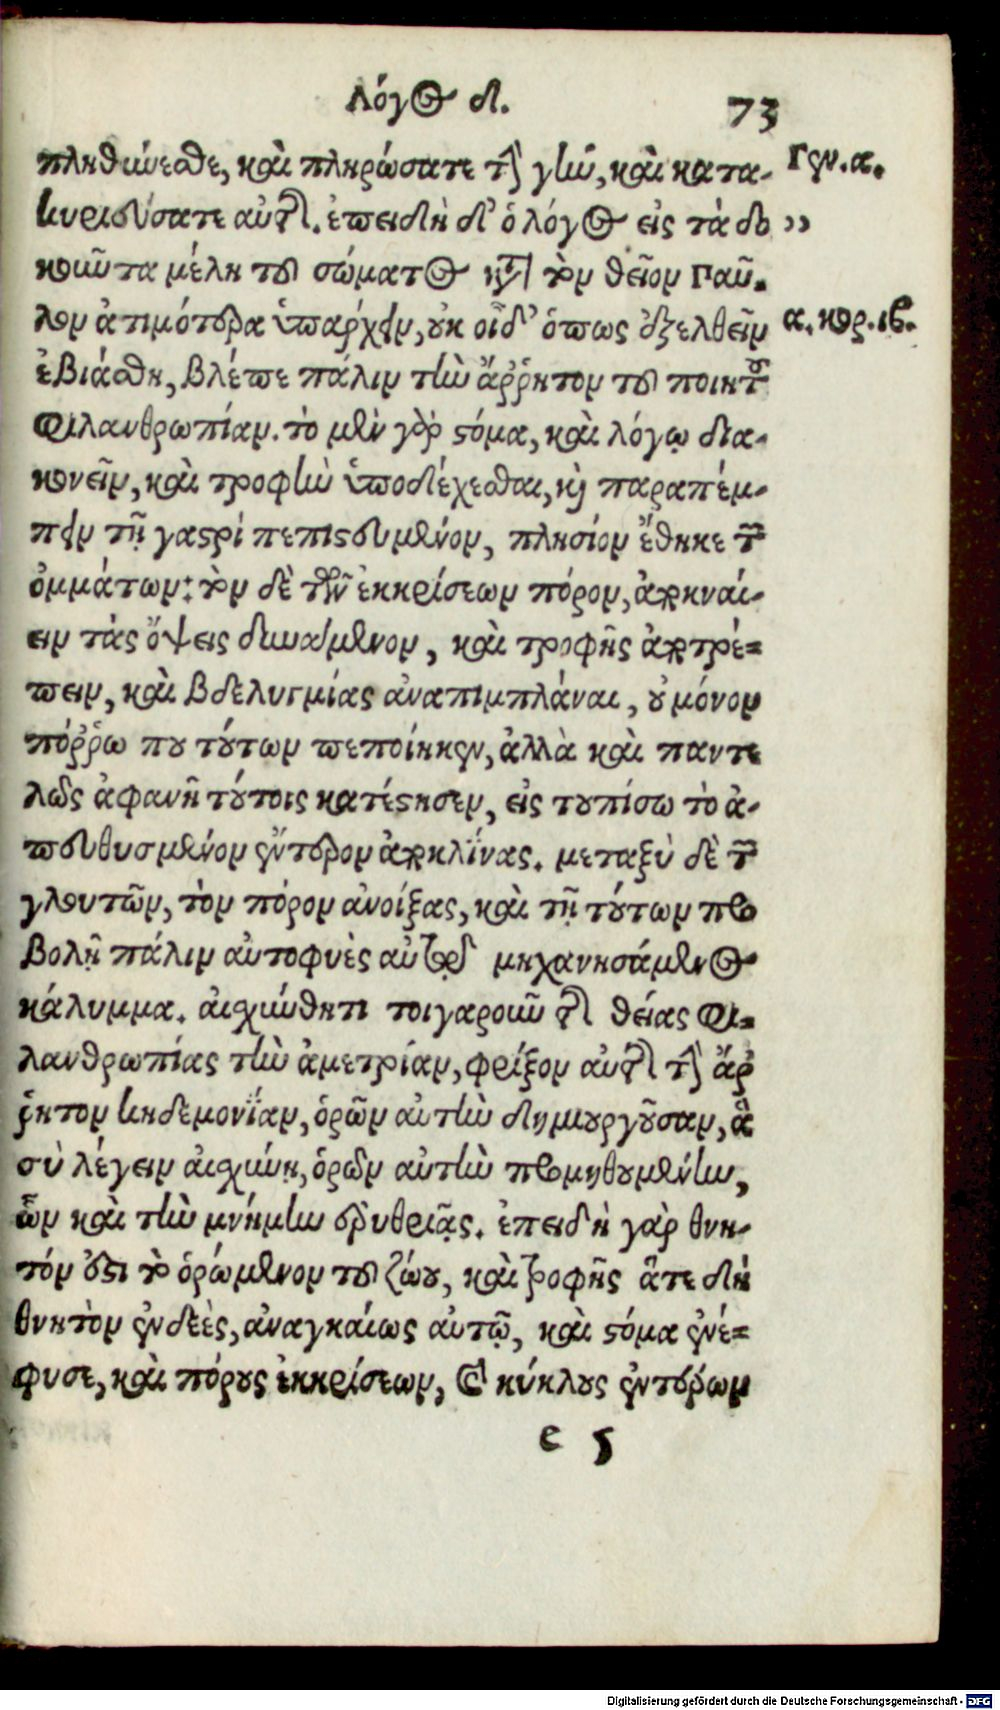 Λόγος δ. 73
πληθύνεσθε, καὶ πληρώσατε τὴν γῆν, καὶ κατα- Γεν. α.
κυριεύσατε αὐτῆς. ἐπειδὴ δ' ὁ λόγος εἰς τὰ δο ››
κοῦντα μέλη τοῦ σώματος κατὰ τὸν θεῖον Παῦ-
λον ἀτιμότερα ὑπάρχειν, οὐκ οἶδ' ὅπως ἐξελθεῖν α. κορ. ιβ.
ἐβιάσθη, βλέπε πάλιν τὴν ἄῤῥητον τοῦ ποιητοῦ
φιλανθρωπίαν. τὸ μὲν γὰρ στόμα, καὶ λόγῳ δια-
κονεῖν, καὶ τροφὴν ὑποδέχεσθαι, καὶ παραπέμ-
πειν τῇ γαστρὶ πεπιστευμένον, πλησίον ἔθηκε τῶν
ὀμμάτων: τὸν δὲ τῶν ἐκκρίσεων πόρον, ἀποκναί-
ειν τὰς ὄψεις δυνάμενον, καὶ τροφῆς ἀποτρέ=
πειν, καὶ βδελυγμίας ἀναπιμπλάναι, οὐ μόνον
πόῤῥω που τούτων πεποίηκεν, ἀλλὰ καὶ παντε
λῶς ἀφανῆ τούτοις κατέστησεν, εἰς τουπίσω τὸ ἀ-
πευθυσμένον ἔντερον ἀποκλίνας. μεταξὺ δὲ τῶν
γλουτῶν, τὸν πόρον ἀνοίξας, καὶ τῇ τούτων προ
βολῇ πάλιν αὐτοφυὲς αὐτῷ μηχανησάμενος
κάλυμμα. αἰσχύνθητι τοιγαροῦν τῆς θείας φι=
λανθρωπίας τὴν ἀμετρίαν, φρίξον αὐτῆς τὴν ἄῤ
ῥητον κηδεμονίαν, ὁρῶν αὐτὴν δημιουργοῦσαν, ἃ
σὺ λέγειν αἰσχύνῃ, ὁρῶν αὐτὴν προμηθουμένην,
ὧν καὶ τὴν μνήμην ἐρυθριᾷς. ἐπειδὴ γὰρ θνη-
τόν ἐστι τὸ ὁρώμενον τοῦ ζώου, καὶ τροφῆς ἅτε δὴ
θνητὸν ἐνδεὲς, ἀναγκαίως αὐτῷ, καὶ στόμα ἐνέ=
φυσε, καὶ πόρους ἐκκρίσεων, καὶ κύκλους ἐντέρων
Digitalisierung gefördert durch die Deutsche Forschungsgemeinschaft - DFG